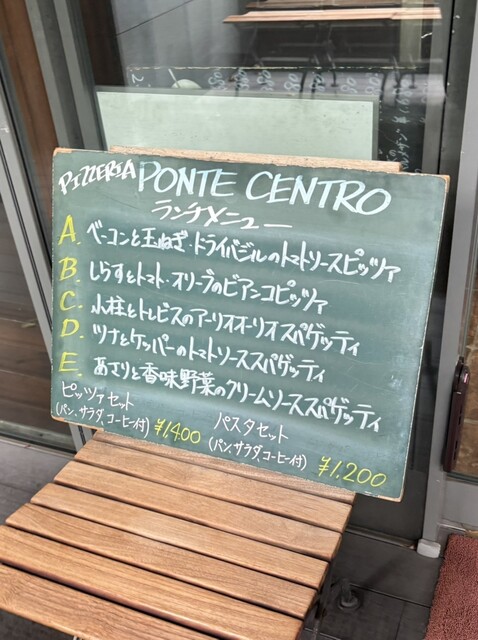 PIZZERIA PONTE CENTRO
ランチメニュー
A. ベーコンと玉ねぎ・ドライバジルのトマトソースピッツァ
B. しらすとトマト・オリーブのビアンコピッツァ
C. 小柱とトレビスのアーリオオーリオスパゲッティ
D. ツナとケッパーのトマトソーススパゲッティ
E. あさりと香味野菜のクリームソーススパゲッティ
ピッツァセット
(パン、サラダ、コーヒー付) ¥1,400
パスタセット
(パン、サラダ、コーヒー付) ¥1,200